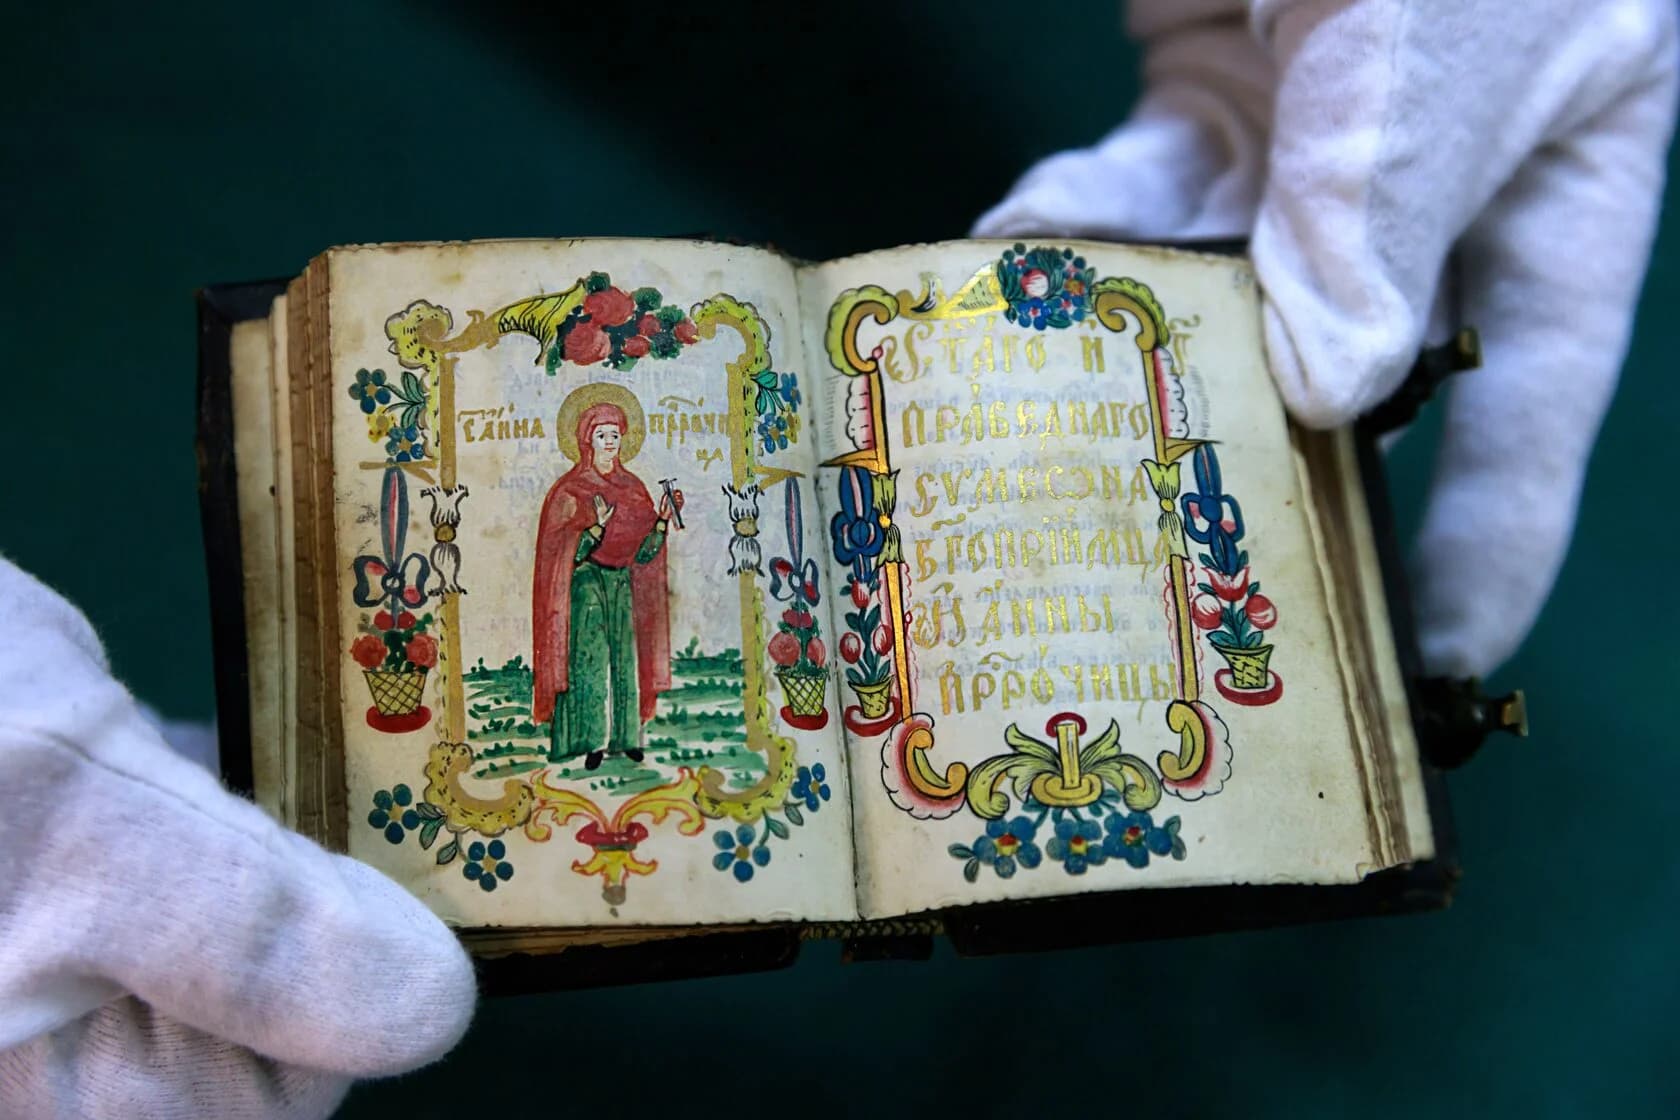 С҃ АННА ПРР҃ОЧИ
ЦА
СТ҃А́ГО И҆
ПРА́ВЕДНАГО
СѴМЕѠНА
БГ҃ОПРІИ́МЦА
И҆ А́ННЫ
ПРР҃О́ЧИЦЫ